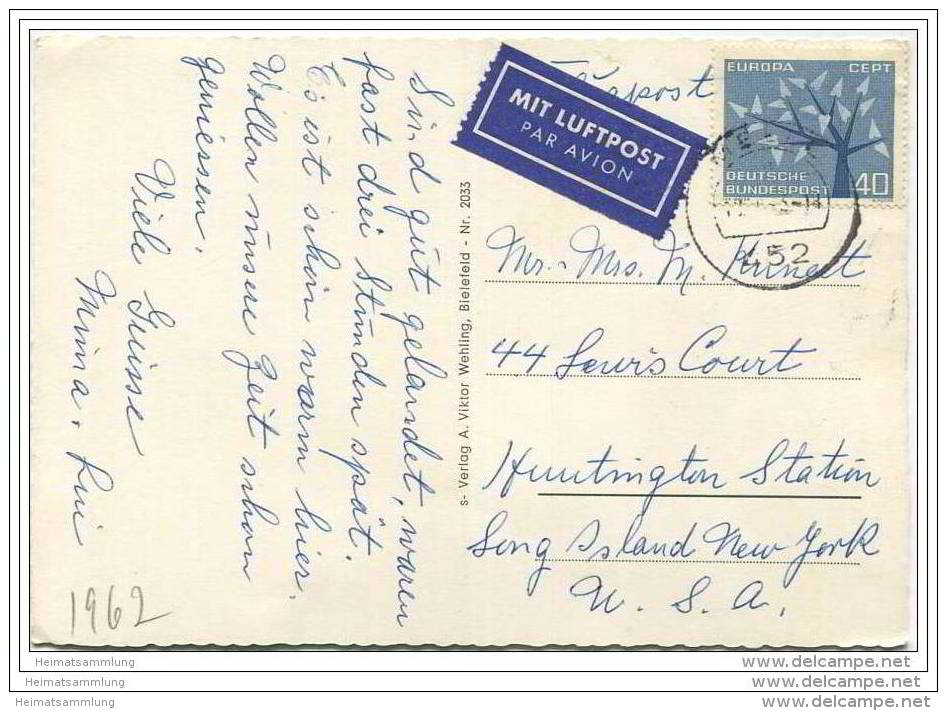 Sind gut gelandet, waren
fast drei Stunden spät.
Es ist schön warm hier.
Wollen unsere Zeit schon
geniessen.
Viele Grüsse
Minna,
1962
s- Verlag A. Viktor Wehling, Bielefeld - Nr. 2033
MIT LUFTPOST
PAR AVION
EUROPA CEPT
DEUTSCHE
BUNDESPOST 40
452
Mr. Mrs. M.
44 Lewis Court
Huntington Station
Long Island New York
U. S. A.
Heimatsammlung
Heimatsammlung
Heimatsammlung
www.delcampe.net
www.delcampe.net
www.delcampe.net